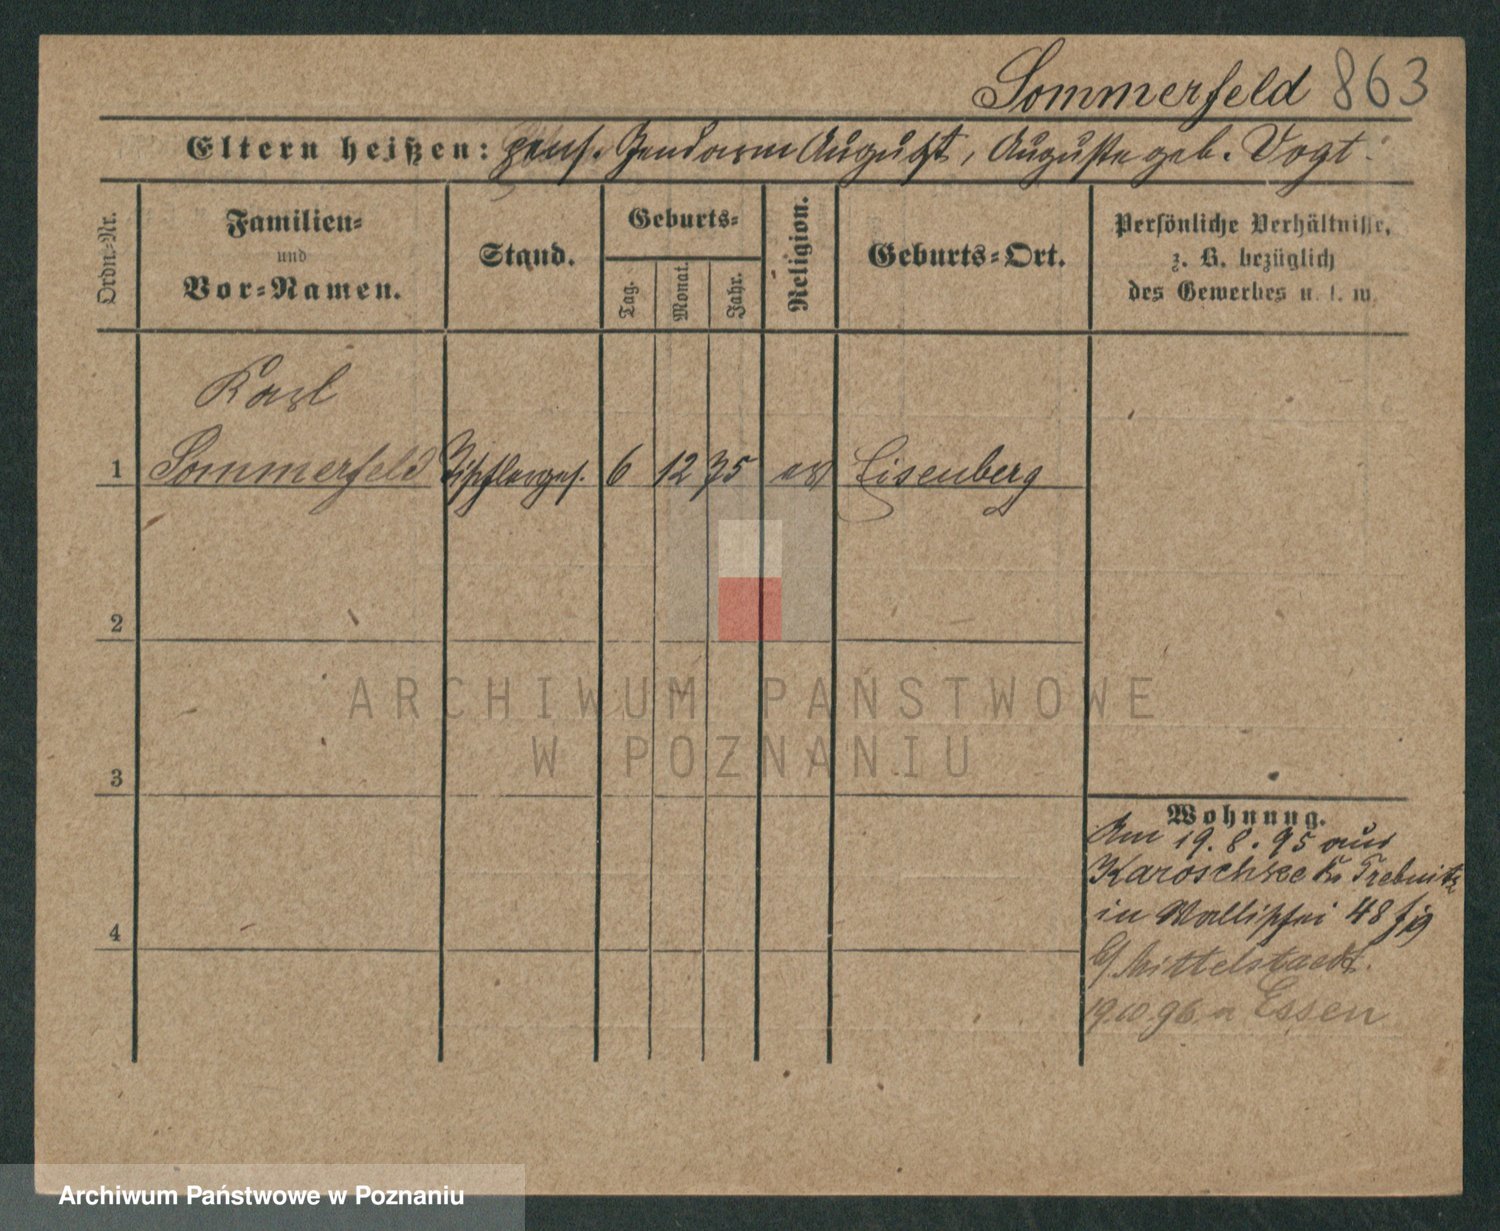 Sommerfeld 863
Eltern heißen: pens. Gendarm August, Auguste geb. Vogt.
Ordn.-Nr.
Familien-
und
Vor-Namen.
Stand.
Geburts-
Tag.
Monat.
Jahr.
Religion.
Geburts-Ort.
Persönliche Verhältnisse,
z. B. bezüglich
des Gewerbes u. s. w.
Karl
1 Sommerfeld Tischlerges. 6 12 75 ev Eisenberg
2
3
4
Wohnung.
Am 19.8.95 aus
Karoschke Kr Trebnitz
in Wallischei 48
b/ Mittelstaedt.
19.10.96. n Essen
ARCHIWUM PAŃSTWOWE
W POZNANIU
Archiwum Państwowe w Poznaniu